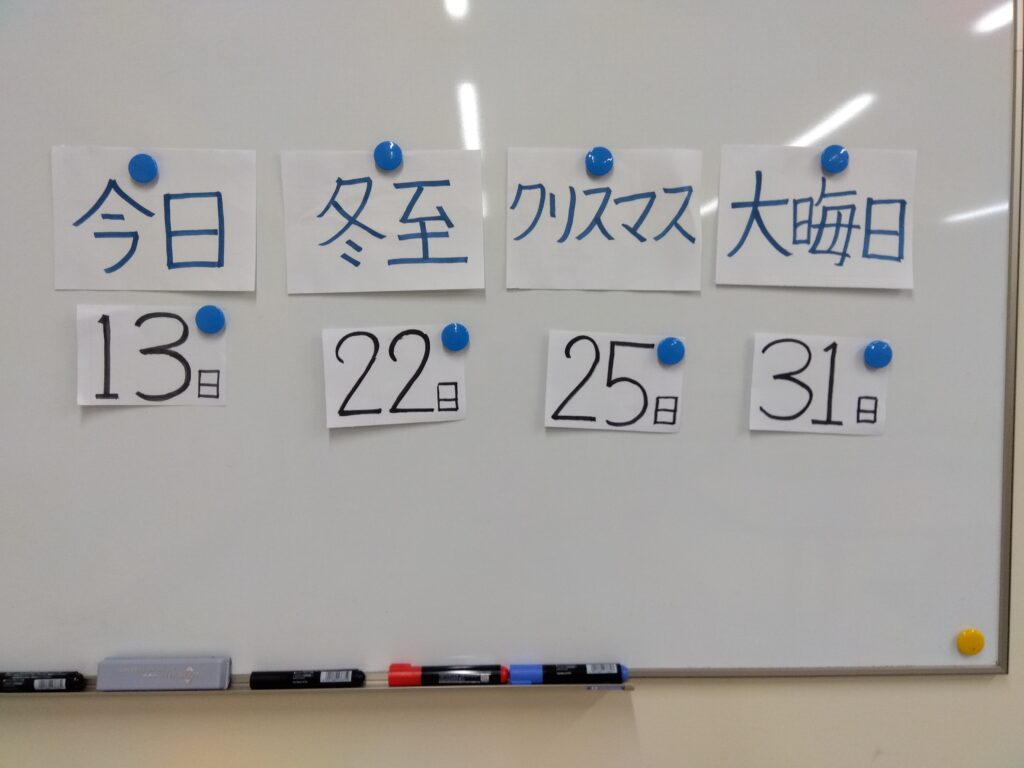 今日 冬至 クリスマス 大晦日
13日 22日 25日 31日